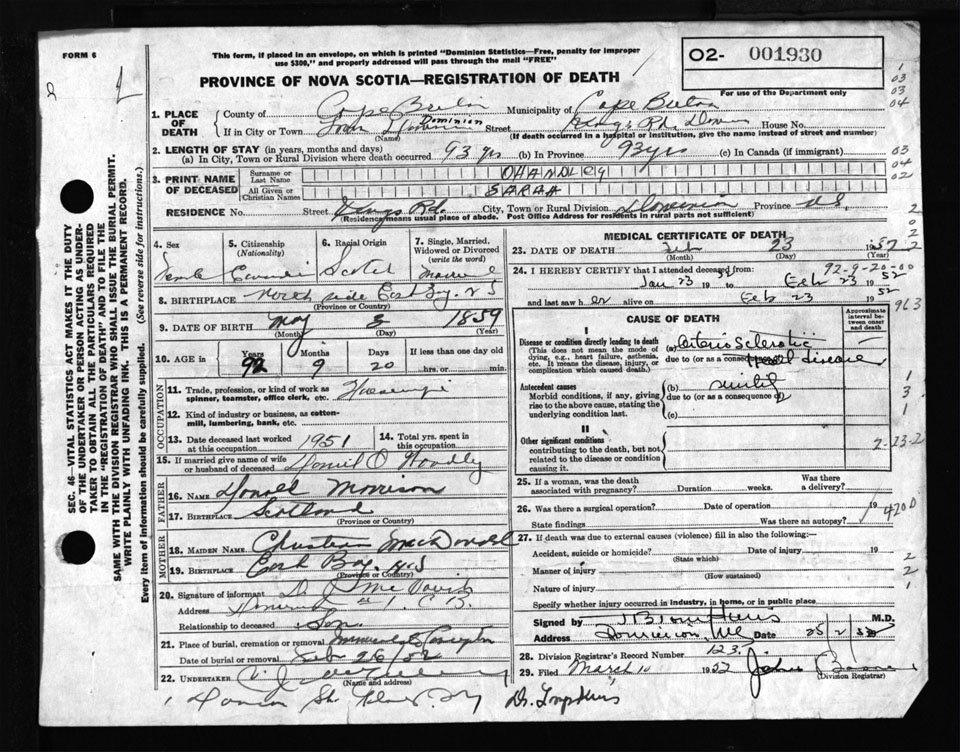 FORM 6
This form, if placed in an envelope, on which is printed "Dominion Statistics—Free, penalty for improper
use $300," and properly addressed will pass through the mail "FREE"
PROVINCE OF NOVA SCOTIA—REGISTRATION OF DEATH
O2- 001930
For use of the Department only
1. PLACE OF DEATH
County of Cape Breton Municipality of Cape Breton
If in City or Town Town Dominion Dominion Street Kings Rd. House No.
(Name) (If death occurred in a hospital or institution, give the name instead of street and number)
2. LENGTH OF STAY (in years, months and days)
(a) In City, Town or Rural Division where death occurred 93 yrs (b) In Province 93 yrs (c) In Canada (if immigrant)
3. PRINT NAME OF DECEASED
Surname or Last Name OHANDLEY
All Given or Christian Names SARAH
RESIDENCE No. Street Kings Rd. City, Town or Rural Division Dominion Province N.S.
(Residence means usual place of abode. Post Office Address for residents in rural parts not sufficient)
4. Sex Female
5. Citizenship (Nationality) Canadian
6. Racial Origin Scotch
7. Single, Married, Widowed or Divorced (write the word) Married
8. BIRTHPLACE North side East Bay. N S
(Province or Country)
9. DATE OF BIRTH May 3 1859
(Month) (Day) (Year)
10. AGE in Years Months Days If less than one day old
92 9 20 hrs. or min.
OCCUPATION
11. Trade, profession, or kind of work as spinner, teamster, office clerk, etc. Housewife
12. Kind of industry or business, as cotton-mill, lumbering, bank, etc.
13. Date deceased last worked at this occupation 1951
14. Total yrs. spent in this occupation
15. If married give name of wife or husband of deceased Daniel O Handley
FATHER
16. NAME Donald Morrison
17. BIRTHPLACE Scotland
(Province or Country)
MOTHER
18. MAIDEN NAME MacDonald
19. BIRTHPLACE East Bay. N S
(Province or Country)
20. Signature of informant
Address Dominion #1. C B.
Relationship to deceased Son
21. Place of burial, cremation or removal
Date of burial or removal Feb 26/52
22. UNDERTAKER
(Name and address)
MEDICAL CERTIFICATE OF DEATH
23. DATE OF DEATH Feb 23 1952
(Month) (Day) (Year)
24. I HEREBY CERTIFY that I attended deceased from
92-9-20-00
Jan 23 19 to Feb 23 19 52
and last saw h er alive on Feb 23 19 52
CAUSE OF DEATH
Approximate interval between onset and death
I
Disease or condition directly leading to death
(This does not mean the mode of dying, e.g., heart failure, asthenia, etc. It means the disease, injury, or complication which caused death.)
(a) Arterio Sclerotic
due to (or as a consequence of) disease
Antecedent causes
Morbid conditions, if any, giving rise to the above cause, stating the underlying condition last.
(b)
due to (or as a consequence of)
(c)
II
Other significant conditions
contributing to the death, but not related to the disease or condition causing it.
25. If a woman, was the death associated with pregnancy? Duration weeks. Was there a delivery?
26. Was there a surgical operation? Date of operation 19
State findings Was there an autopsy?
4200
27. If death was due to external causes (violence) fill in also the following:—
Accident, suicide or homicide? Date of injury 19
(State which)
Manner of injury
(How sustained)
Nature of injury
Specify whether injury occurred in industry, in home, or in public place
Signed by M.D.
Address Dominion, Date 25/2/52
28. Division Registrar's Record Number 123.
29. Filed March 10 1952 John
(Division Registrar)
SEC. 46—VITAL STATISTICS ACT MAKES IT THE DUTY
OF THE UNDERTAKER OR PERSON ACTING AS UNDER-
TAKER TO OBTAIN ALL THE PARTICULARS REQUIRED
IN THE "REGISTRATION OF DEATH" AND TO FILE THE
SAME WITH THE DIVISION REGISTRAR WHO SHALL ISSUE THE BURIAL PERMIT.
WRITE PLAINLY WITH UNFADING INK. THIS IS A PERMANENT RECORD.
Every item of information should be carefully supplied. (See reverse side for instructions.)
1
03
03
04
03
04
02
2
0
2
2
963
1
3
1
2-23-2
2
2
1